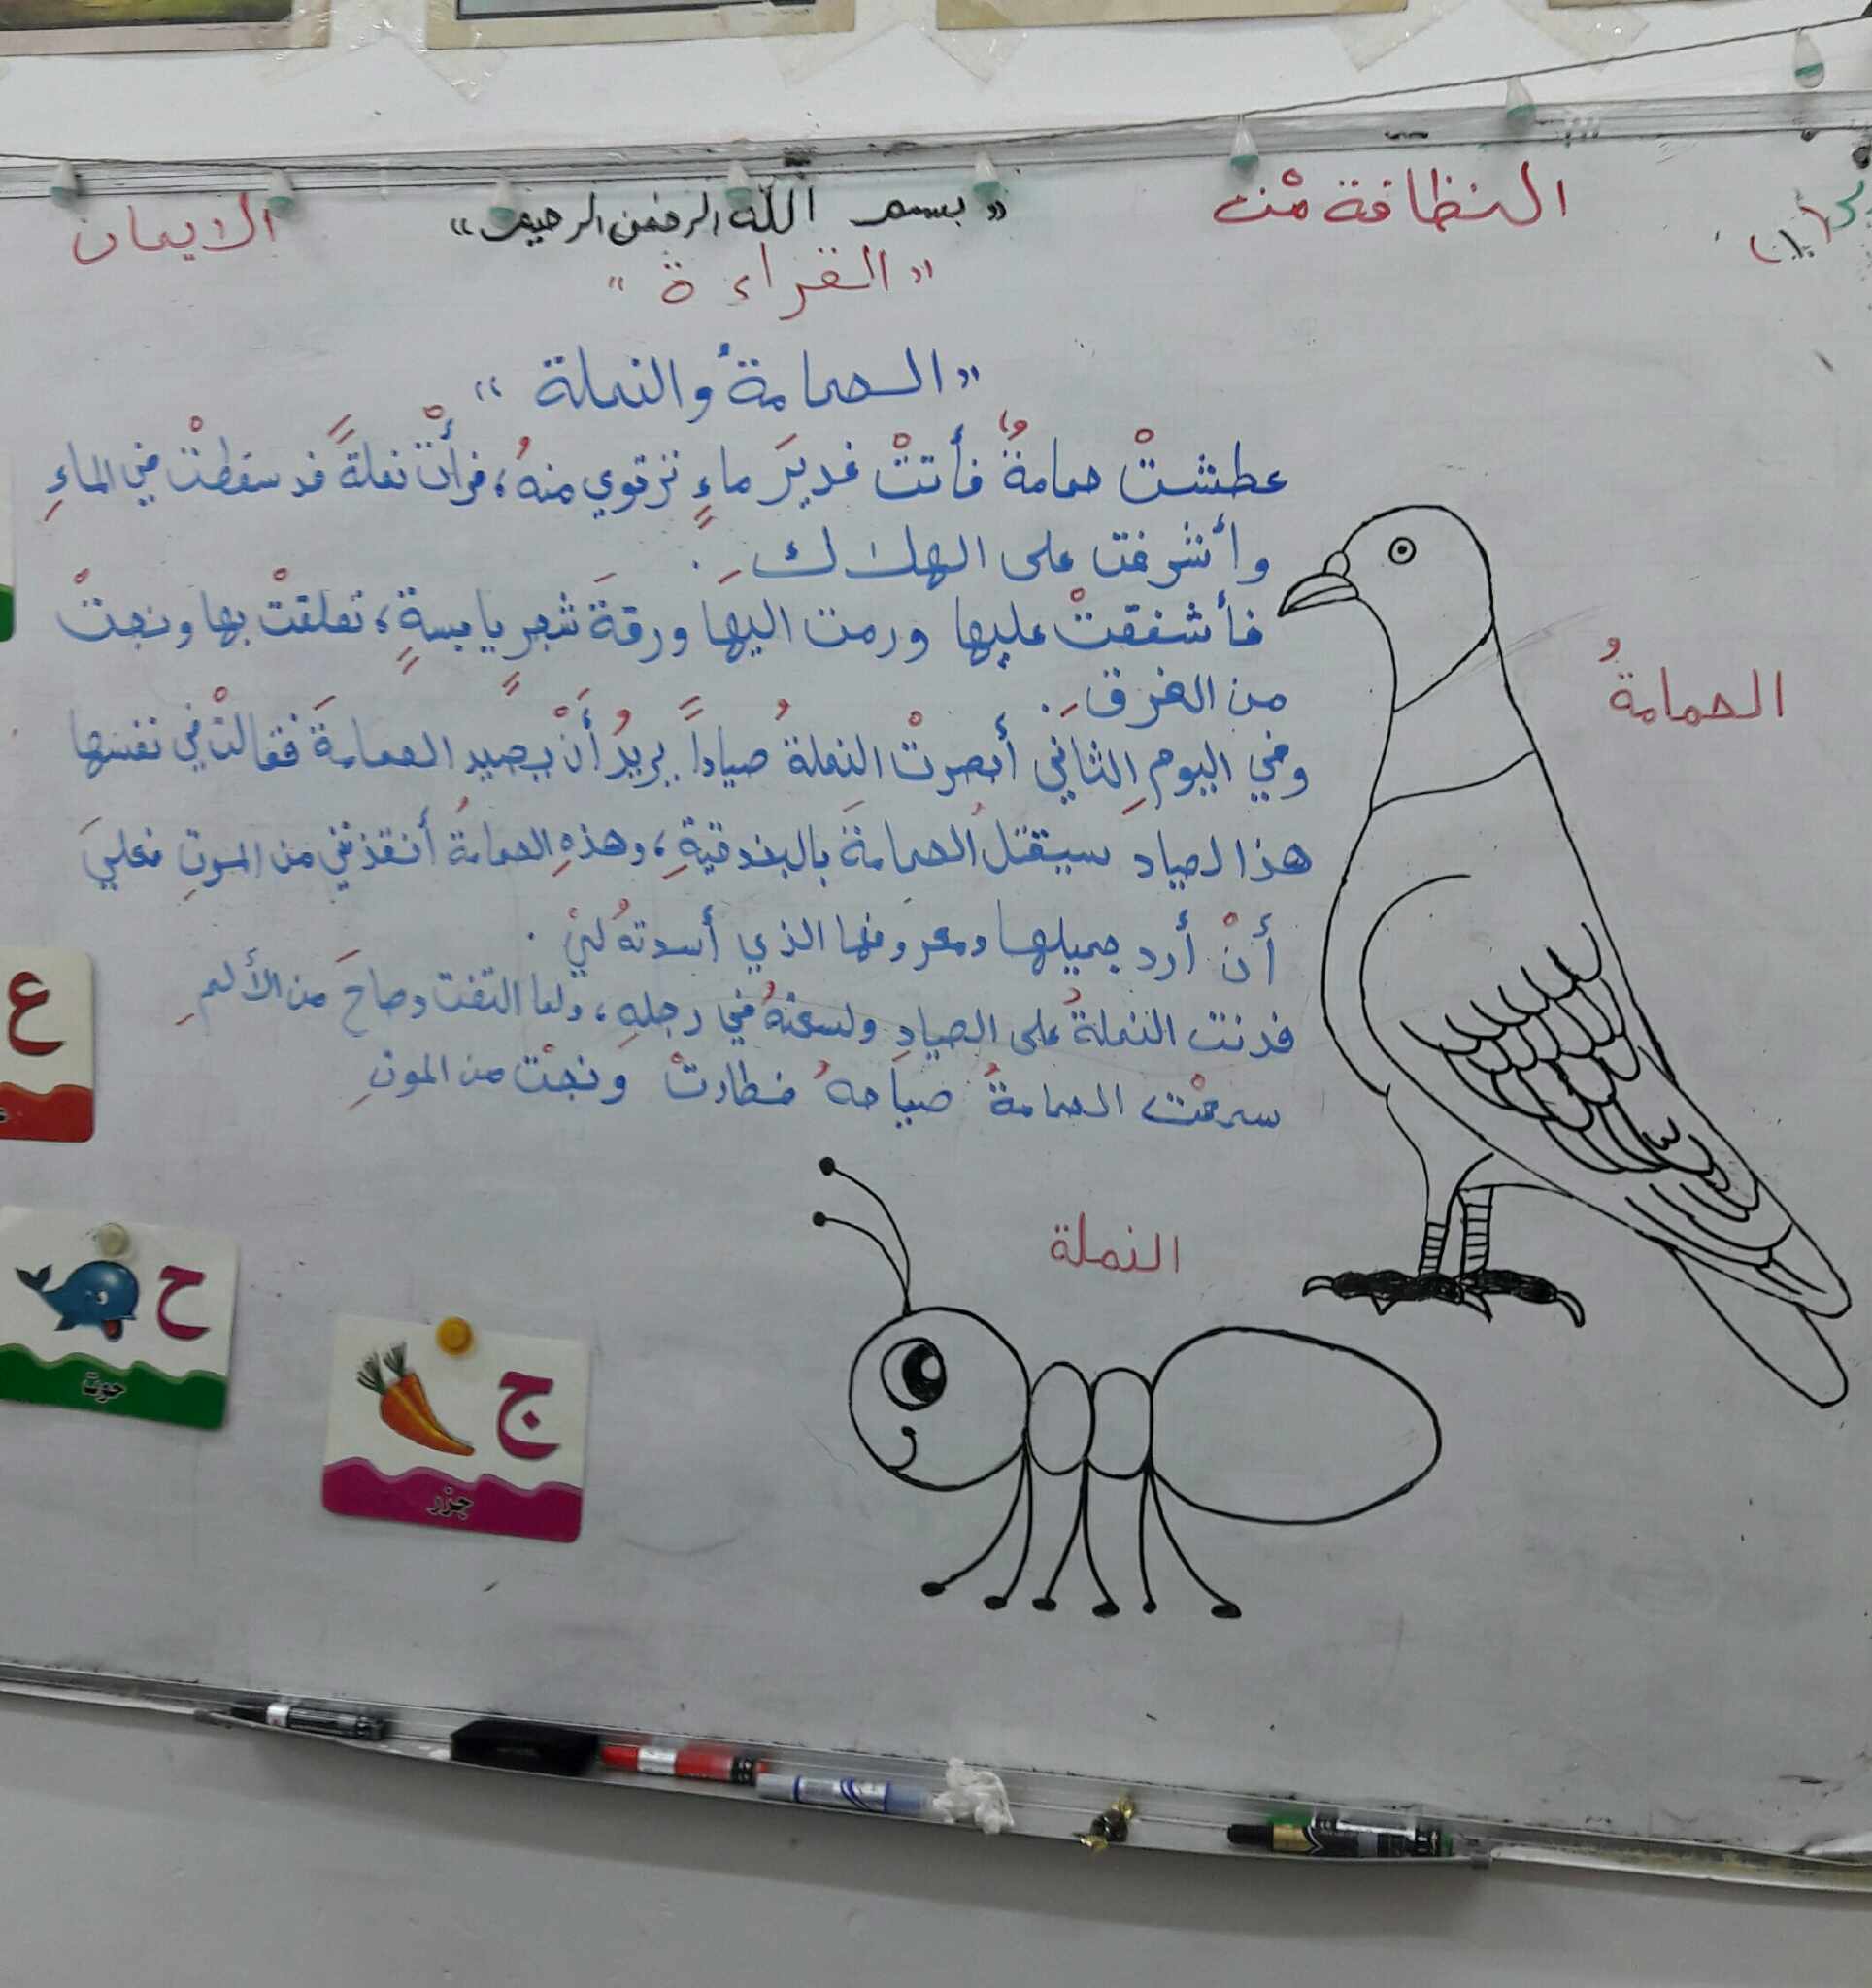 النظافة منْ
الايمان
«بسم الله الرحمن الرحيم»
«القراءة»
«الحمامةُ والنملة»
عطشتْ حمامةٌ فأتتْ غديرَ ماءٍ ترتوي منهُ، فرأتْ نملةً قد سقطتْ في الماءِ
وأشرفت على الهلاكِ.
فأشفقتْ عليها ورمت اليها ورقةَ شجرٍ يابسةٍ، تعلقتْ بها ونجتْ
من الغرقِ.
وفي اليومِ الثاني أبصرتْ النملةُ صياداً يريدُ أنْ يصيد الحمامةَ فقالتْ في نفسها
هذا لصياد سيقتلُ الحمامةَ بالبندقيةِ، وهذهِ الحمامةُ أنقذتني من الموتِ فعليَ
أنْ أرد جميلها ومعروفها الذي أسدتهُ ليْ.
فدنت النملةُ على الصيادِ ولسعتهُ في رجلهِ، ولما التفت وصاحَ من الألمِ
سمعْت الحمامةُ صياحهُ فطارتْ ونجتْ من الموتِ
الحمامةُ
النملة
ع
ح
حوت
ج
جزر